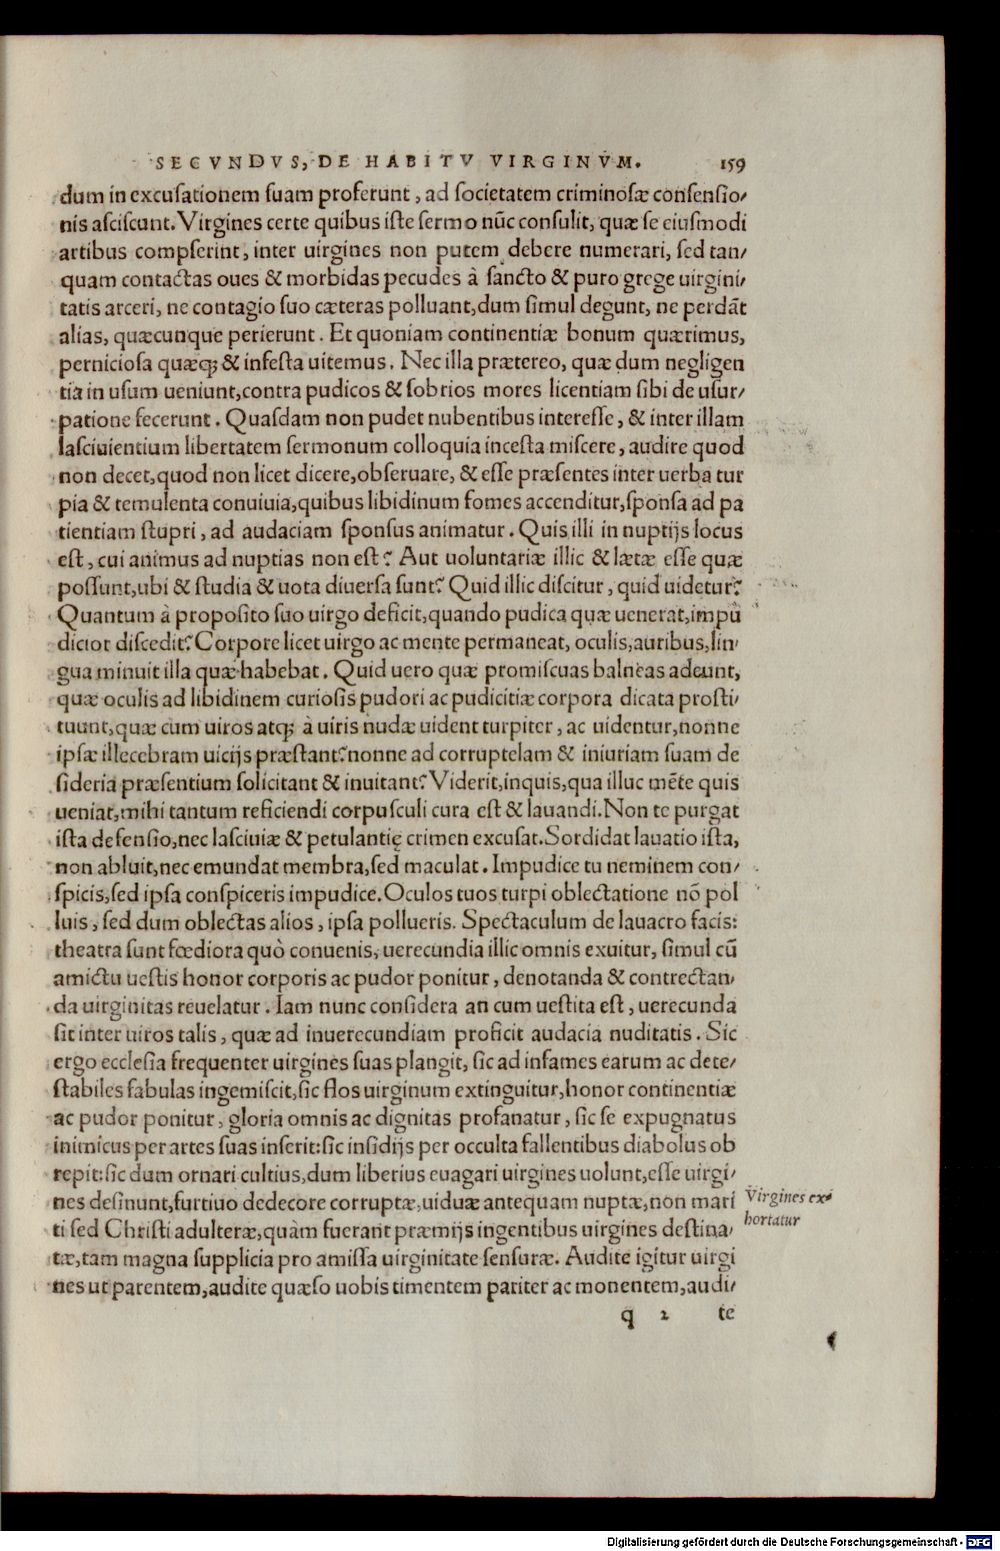 SECVNDVS, DE HABITV VIRGINVM. 159
dum in excusationem suam proferunt, ad societatem criminosæ consensio/
nis asciscunt. Virgines certe quibus iste sermo nūc consulit, quæ se eiusmodi
artibus compserint, inter uirgines non putem debere numerari, sed tan/
quam contactas oues & morbidas pecudes à sancto & puro grege uirgini/
tatis arceri, ne contagio suo cæteras polluant, dum simul degunt, ne perdāt
alias, quæcunque perierunt. Et quoniam continentiæ bonum quærimus,
perniciosa quæq; & infesta uitemus. Nec illa prætereo, quæ dum negligen
tia in usum ueniunt, contra pudicos & sobrios mores licentiam sibi de usur/
patione fecerunt. Quasdam non pudet nubentibus interesse, & inter illam
lasciuientium libertatem sermonum colloquia incesta miscere, audire quod
non decet, quod non licet dicere, obseruare, & esse præsentes inter uerba tur
pia & temulenta conuiuia, quibus libidinum fomes accenditur, sponsa ad pa
tientiam stupri, ad audaciam sponsus animatur. Quis illi in nuptijs locus
est, cui animus ad nuptias non est? Aut uoluntariæ illic & lætæ esse quæ
possunt, ubi & studia & uota diuersa sunt? Quid illic discitur, quid uidetur?
Quantum à proposito suo uirgo deficit, quando pudica quæ uenerat, impu
dicior discedit? Corpore licet uirgo ac mente permaneat, oculis, auribus, lin/
gua minuit illa quæ habebat. Quid uero quæ promiscuas balneas adeunt,
quæ oculis ad libidinem curiosis pudori ac pudicitiæ corpora dicata prosti/
tuunt, quæ cum uiros atq; à uiris nudæ uident turpiter, ac uidentur, nonne
ipsæ illecebram uicijs præstant? nonne ad corruptelam & iniuriam suam de
sideria præsentium solicitant & inuitant? Viderit, inquis, qua illuc mēte quis
ueniat, mihi tantum reficiendi corpusculi cura est & lauandi. Non te purgat
ista defensio, nec lasciuiæ & petulantię crimen excusat. Sordidat lauatio ista,
non abluit, nec emundat membra, sed maculat. Impudice tu neminem con/
spicis, sed ipsa conspiceris impudice. Oculos tuos turpi oblectatione nō pol
luis, sed dum oblectas alios, ipsa pollueris. Spectaculum de lauacro facis:
theatra sunt fœdiora quò conuenis, uerecundia illic omnis exuitur, simul cū
amictu uestis honor corporis ac pudor ponitur, denotanda & contrectan/
da uirginitas reuelatur. Iam nunc considera an cum uestita est, uerecunda
sit inter uiros talis, quæ ad inuerecundiam proficit audacia nuditatis. Sic
ergo ecclesia frequenter uirgines suas plangit, sic ad infames earum ac dete/
stabiles fabulas ingemiscit, sic flos uirginum extinguitur, honor continentiæ
ac pudor ponitur, gloria omnis ac dignitas profanatur, sic se expugnatus
inimicus per artes suas inserit: sic insidijs per occulta fallentibus diabolus ob
repit: sic dum ornari cultius, dum liberius euagari uirgines uolunt, esse uirgi/
nes desinunt, furtiuo dedecore corruptæ, uiduæ antequam nuptæ, non mari
ti sed Christi adulteræ, quàm fuerant præmijs ingentibus uirgines destina/
tæ, tam magna supplicia pro amissa uirginitate sensuræ. Audite igitur uirgi
nes ut parentem, audite quæso uobis timentem pariter ac monentem, audi/
Virgines ex/
hortatur
q 2 te
Digitalisierung gefördert durch die Deutsche Forschungsgemeinschaft - DFG